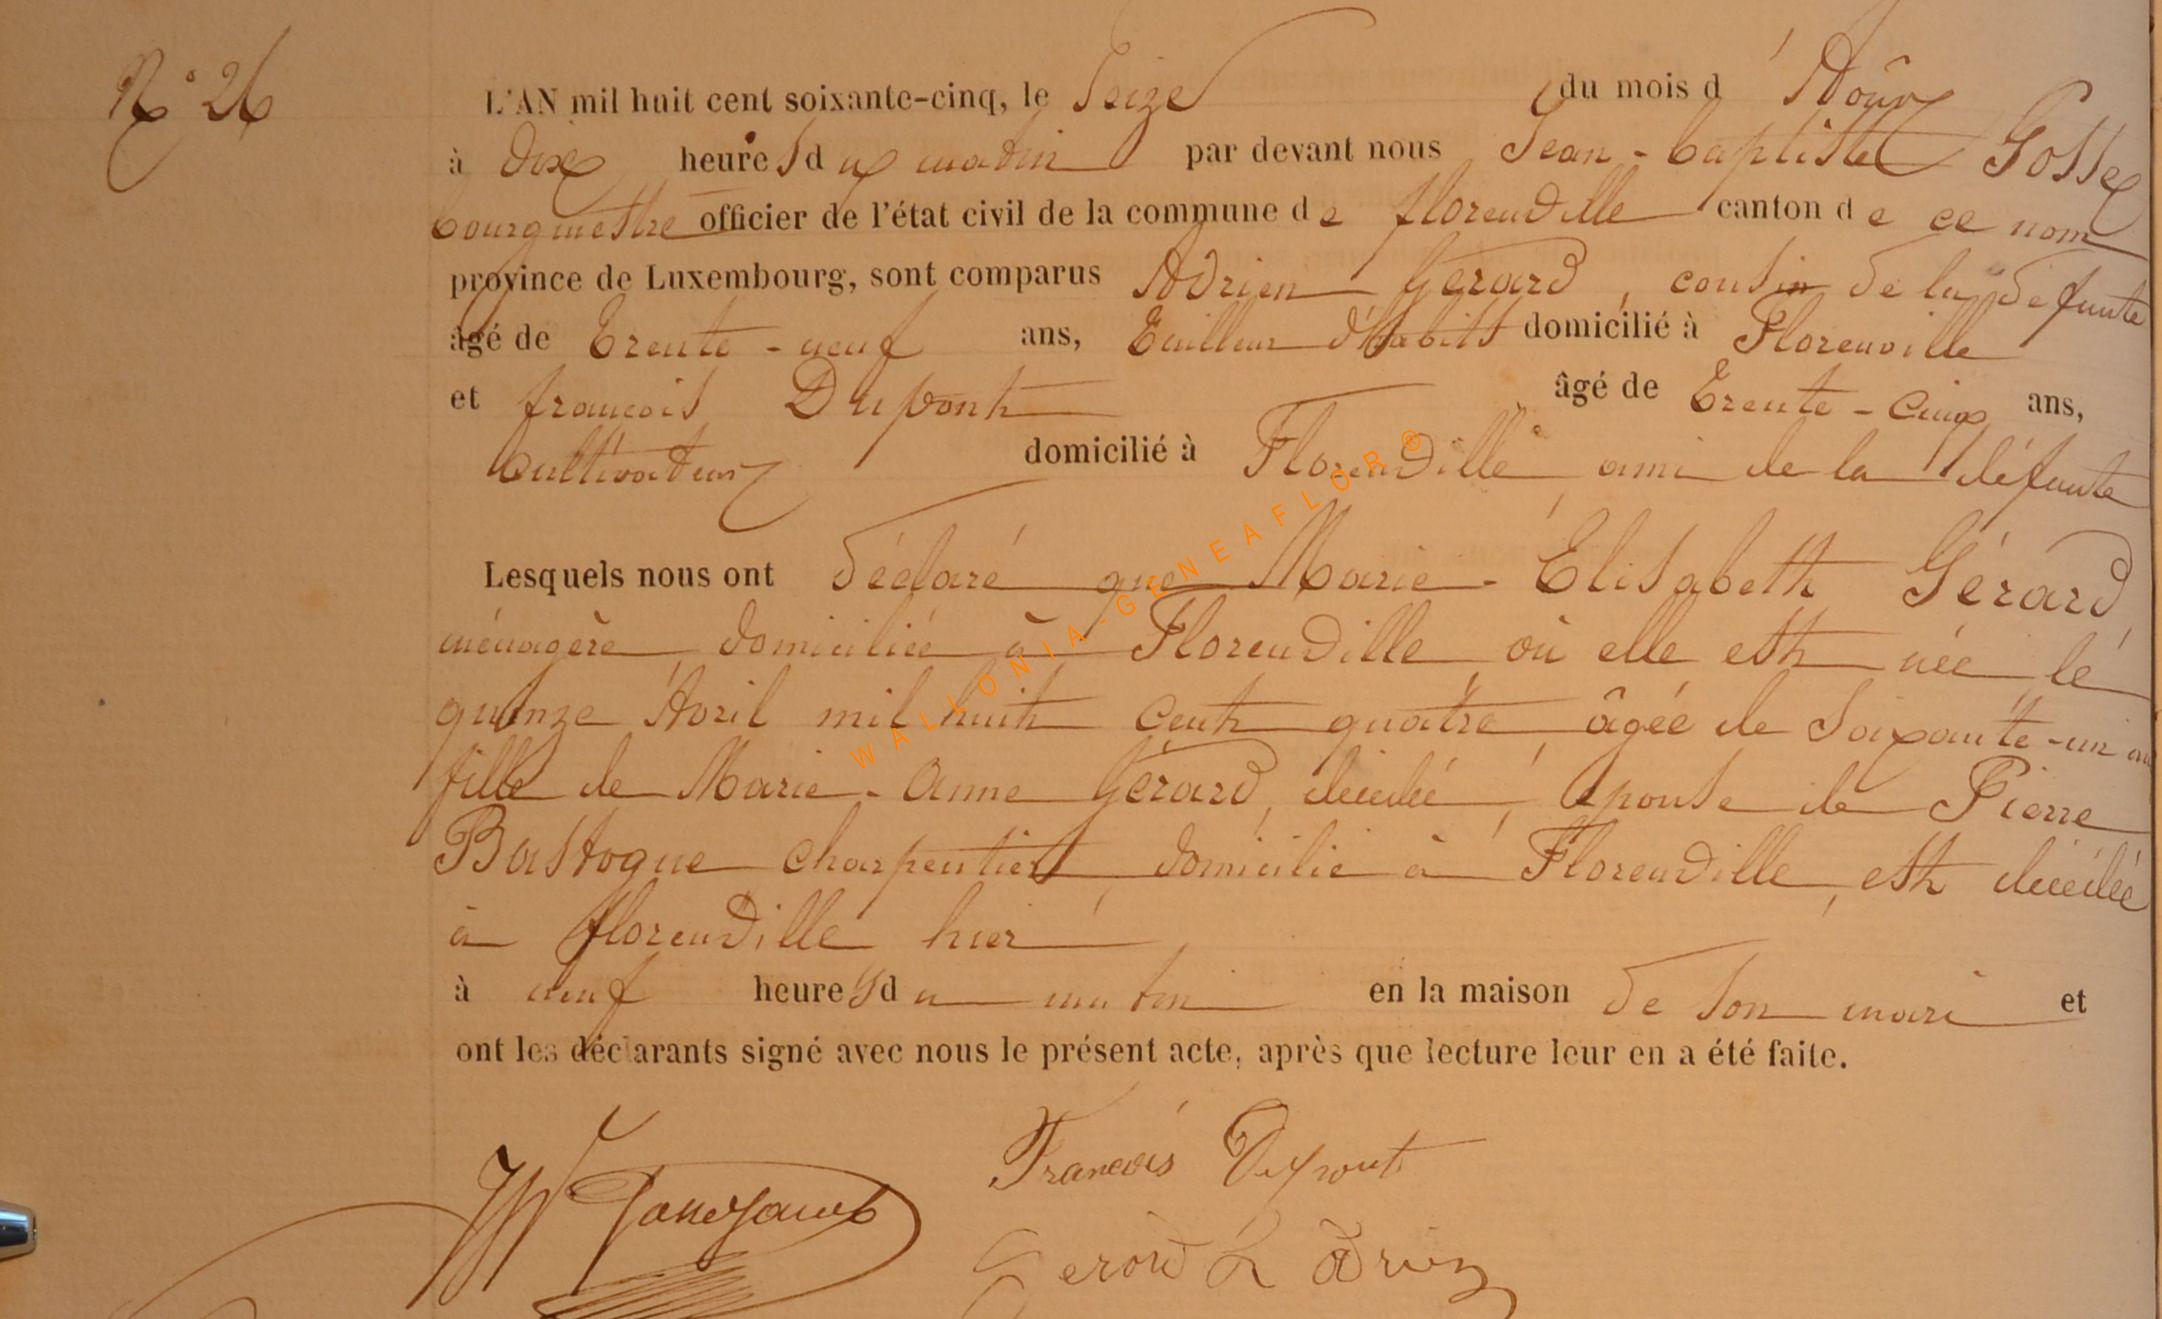 N° 26
L'AN mil huit cent soixante-cinq, le Seize du mois d'Août
à dix heures du matin par devant nous Jean-baptiste Gosse
bourgmestre officier de l'état civil de la commune de florenville canton de ce nom
province de Luxembourg, sont comparus Adrien Gerard, cousin de la defunte
âgé de Trente-neuf ans, Tailleur d'habits domicilié à Florenville
et francois Dupont âgé de Trente-Cinq ans,
Cultivateur domicilié à Florenville, ami de la défunte
Lesquels nous ont déclaré que Marie-Elisabeth Gérard,
ménagère, domiciliée à Florenville, où elle est née le
quinze Avril mil huit cent quatre, âgée de Soixante-un an
fille de Marie-Anne Gérard, décédée, épouse de Pierre
Bastogne charpentier, domicilié à Florenville, est décédée
à florenville hier
à neuf heures du matin en la maison de son mari et
ont les déclarants signé avec nous le présent acte, après que lecture leur en a été faite.
Francois Dupont
Gerard Adrien
WALLONIA-GENEAFLOR®